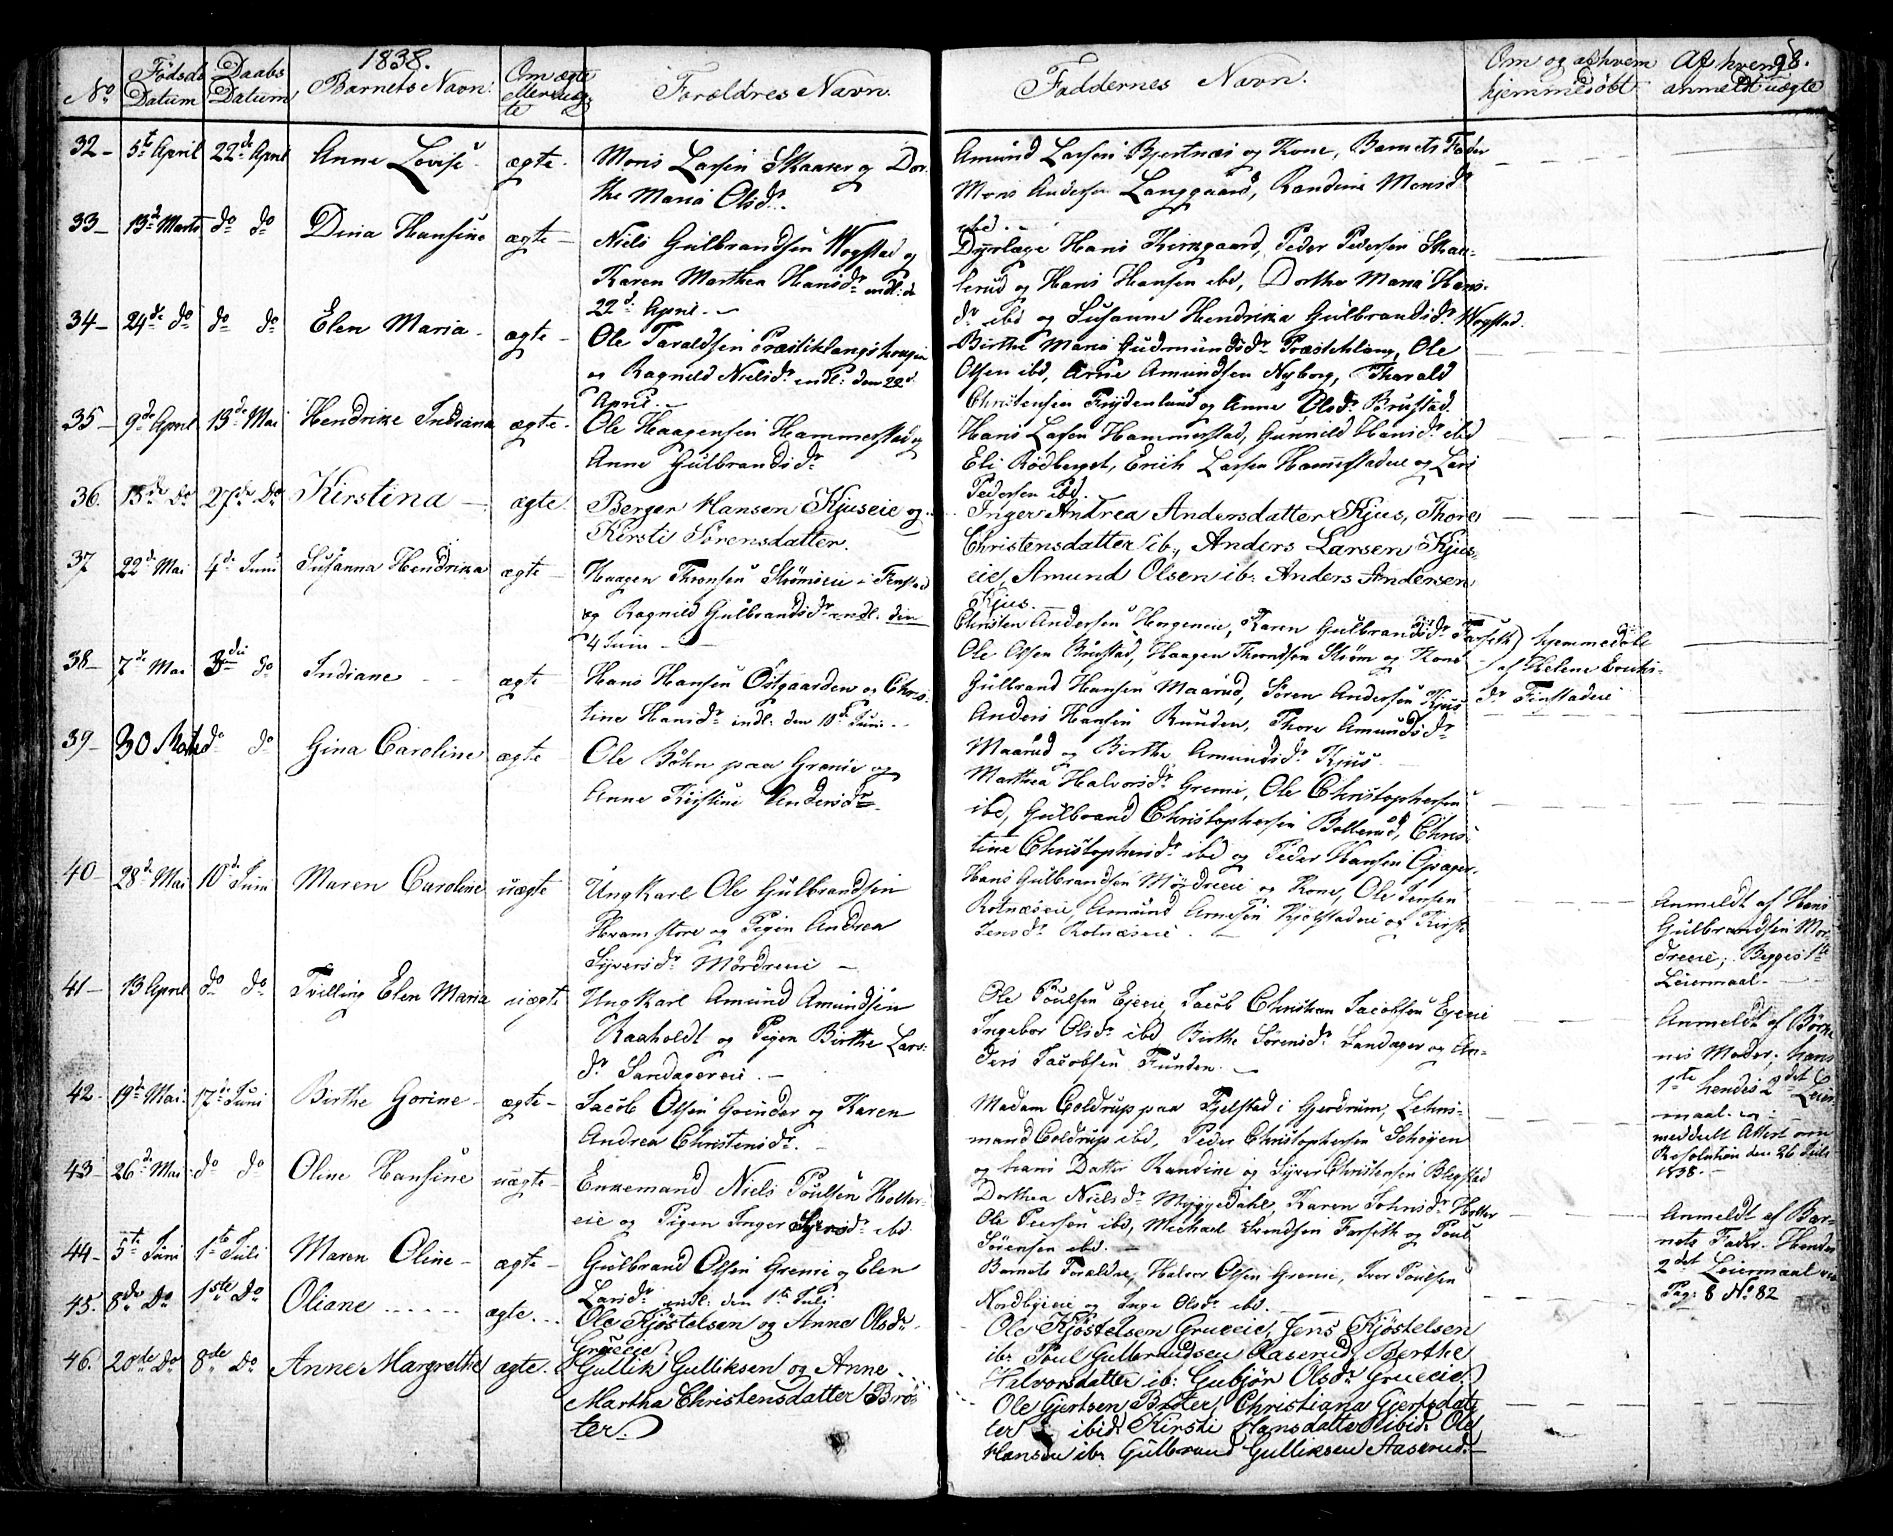 1838.
98.
No
Fødsels Datum
Daabs Datum
Barnets Navn.
Om ægte eller uægte
Forældres Navn.
Faddernes Navn.
Om og af hvem hjemmedøbt
Af hvem anmeldt uægte
32- 5te April 22de April Anne Lovise ægte-
Mons Larsen Skaarer og Dor-
the Maria Olsdr.
Amund Larsen Bjertnæs og Kone, Barnets Fader
Mons Andersen Langgaard, Randine Monsdr
ibd.
33- 13de Marts do do Dina Hansine ægte-
Niels Gulbrandsen Wogstad og
Karen Marthea Hansdr indl: d
22d April.
Dyrlæge Hans Kirkgaard, Peder Pedersen Skaa-
lerud og Hans Hansen ibd, Dorthe Maria Hans-
dr ibd og Susanne Hendrika Gulbrandsdr Wogstad.
34- 24de do do do Elen Maria- ægte-
Ole Taraldsen Præstiklangshougen
og Ragnild Nielsdr indl: den 22d
April.
Birthe Maria Gudmundsdr Præsteklang, Ole
Olsen ibd, Arne Amundsen Nyborg, Tharald
Christensen Frydenlund og Anne Olsdr Brustad.
35- 9de April 13de Mai Hendrike Indiana ægte-
Ole Haagensen Hammerstad og
Anne Gulbrandsdr
Hans Larsen Hammerstad, Gunnild Hansdr ibd
Eli Rødberget, Erich Larsen Hammestadeie og Lars
Pedersen ibd.
36. 13de Do 27de Do Kirstina- ægte.
Berger Hansen Kjuseie og
Kirsti Sørensdatter.
Inger Andrea Andersdatter Kjus, Thore
Christensdatter ib:, Anders Larsen Kjus-
eie, Amund Olsen ib: Anders Andersen
Kjus.
37 22de Mai 4de Juni Susanna Hendrika ægte-
Haagen Thronsen Strømseie i Finstad
og Ragnild Gulbrandsdr indl: den
4 Juni
Christen Andersen Horgeneie, Karen Gulbrandsdr Farseth
Ole Olsen Brustad, Haagen Throndsen Strøm og Kone
hjemmedøbt
af Helene Erichs-
dr Finstadeie
38- 7de Mai 3die do Indiane ægte
Hans Hansen Østgaarden og Chris-
tine Hansdr indl: den 10de Juni
Gulbrand Hansen Maarud, Søren Andersen Kjus
Anders Hansen Runden, Thore Amundsdr
Maarud og Birthe Amundsdr Kjus
39- 30 Marts do do Gina Caroline ægte
Ole Bøhn paa Grænie og
Anne Kirstine Andersdr
Marthea Halvorsdr Grenie, Ole Christophersen
ibd, Gulbrand Christophersen Bollerud, Chris-
tine Christophersdr ibd og Peder Hansen Grager.
40- 28de Mai 10de Juni Maren Caroline uægte
Ungkarl Ole Gulbrandsen
Hvamstore og Pigen Andrea
Syversdr Mørdreeie
Hans Gulbrandsen Mørdreeie og Kone, Ole Jensen
Rotnæseie, Amund Arnesen Kjelstadeie og Kirsti
Jensdr Rotnæseie
Anmeldt af Hans
Gulbrandsen Mør-
dreeie; Begges 1ste
Leiermaal.
41- 13 April do do Tvilling Elen Maria uægte
Ungkarl Amund Amundsen
Raaholdt og Pigen Birthe Lars-
dr Sandagereie.
Ole Poulsen Ejeeie, Jacob Christian Jacobsen Ejeeie
Ingebor Olsdr ibd Birthe Sørensdr Sandager og An-
ders Jacobsen Funden.
Anmeldt af Børne-
nes Moder; hans
1ste hendes 2det Leier
maal.
meddeelt Attest om
Resolution den 26 Juli
1838.
42- 19de Mai. 17de Juni Birthe Gorine- ægte-
Jacob Olsen Grinder og Karen
Andrea Christensdr.
Madam Coldrup paa Fjelstad i Gjerdrum, Lehns-
mand Coldrup ibd, Peder Christophersen Schøyen
og hans Datter Randine og Syver Christensen Blegstad
43- 26de Mai do do Oline Hansine uægte-
Enkemand Niels Poulsen Holter-
eie og Pigen Inger ibd
Dorthea Nielsdr Myggedahl, Karen Johnsdr Holter
Ole Peersen ibd, Michael Svendsen Farseth og Poul
Sørensen ibd.
Anmeldt af Bar-
nets Fader. Hendes
2det Leiermaal
Pag: 8 No 82
44- 5te Juni 1ste Juli Maren Oline- ægte-
Gulbrand Olsen Grenie og Elen
Larsdr indl: den 1ste Juli
Barnets Forældre, Halvor Olsen Grenie, Iver Poulsen
Nordbyeie og Inge Olsdr ibd.
45. 8de Do 1ste Do Oliane ægte.
Ole Kjøstelsen og Anne Olsdr
Grueeie.
Ole Kjøstelsen Grueeie, Jens Kjøstelsen
ib: Poul Gulbrandsen Aaserud, Berthe
Halvorsdatter ib: Gubjør Olsdr Grueeie.
46. 20de Do 8de Do Anne Margrethe ægte.
Gullik Gulliksen og Anne
Martha Christensdatter Brøs-
ter.
Ole Gjertsen Brøter, Christiana Gjertsdat-
ter ibid. Kirsti Hansdatter ibid. Ole
Hansen ib. Gulbrand Gulliksen Aaserud.